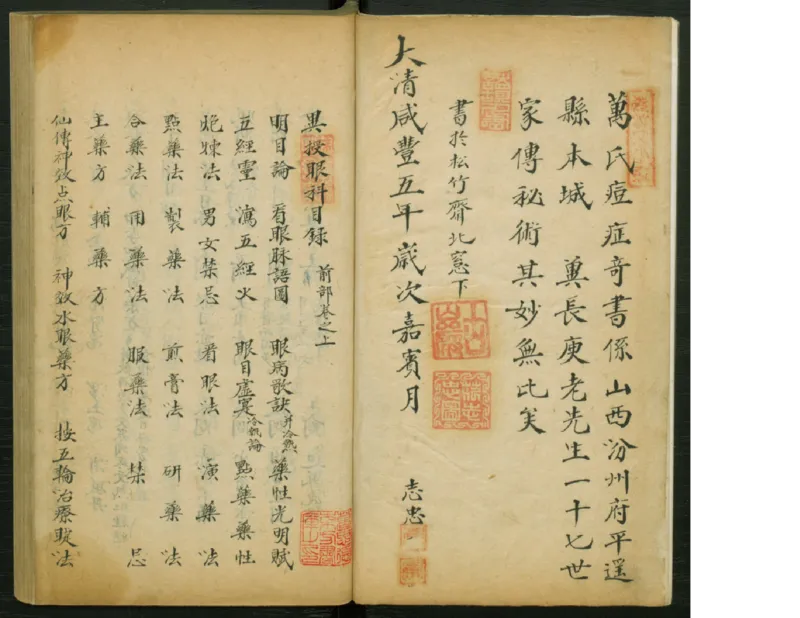 萬氏痘症奇書係山西汾州府平遥
縣本城 冀長庚老先生一十七世
家傳秘術其妙無比矣
書於松竹齋北窓下
大清咸豐五年歲次嘉賓月
志忠
異授眼科目録 前部卷之上
明目論 看眼脉語圖 眼病歌訣并冷熱 藥性光明賦
五經靈 瀉五經火 眼目虚寔冷熱論 點藥藥性
法 男女禁忌 看眼法 演藥法
點藥法 製藥法 煎膏法 研藥法
合藥法 用藥法 服藥法 禁忌
主藥方 輔藥方
仙傳神效点眼方 神效水眼藥方 按五輪治療法